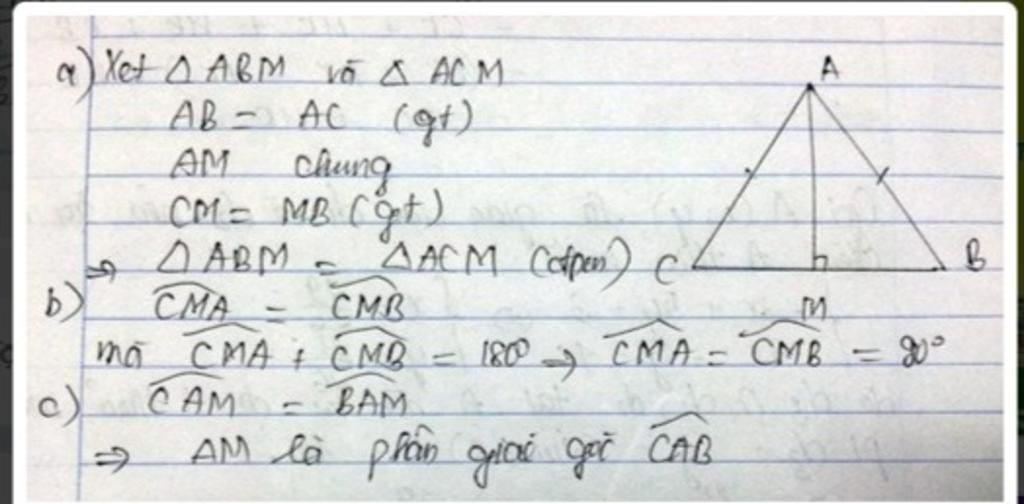 a) Xét △ ABM và △ ACM
AB = AC (gt)
AM chung
CM = MB (gt)
⇒ △ ABM = △ACM
A
C
B
M
b) \widehat{CMA} = \widehat{CMB}
mà \widehat{CMA} + \widehat{CMB} = 180° ⇒ \widehat{CMA} = \widehat{CMB} = 90°
c) \widehat{CAM} = \widehat{BAM}
⇒ AM là phân giác góc \widehat{CAB}